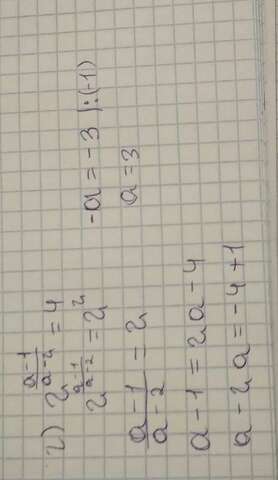 2) 2^{\frac{a-1}{a-2}} = 4
2^{\frac{a-1}{a-2}} = 2^2
\frac{a-1}{a-2} = 2
a - 1 = 2a - 4
a - 2a = -4 + 1
-a = -3 | : (-1)
a = 3